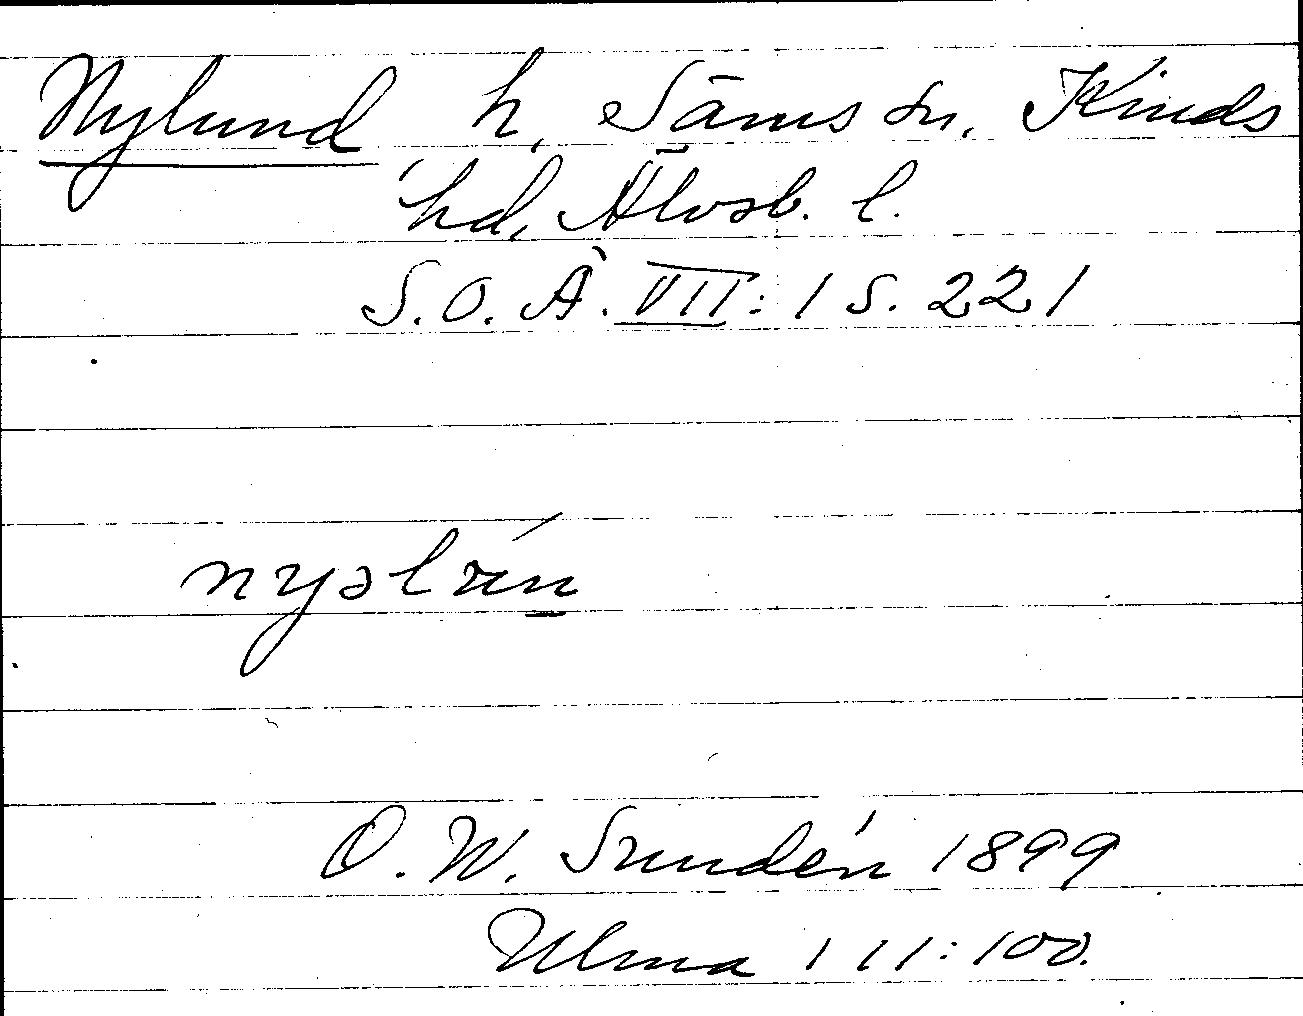 Nylund h. Säms sn, Kinds
hd, Älvsb. l.
S.O.Ä. VII:1 s. 221
O. W. Sundén 1899
Ulma 111:100.